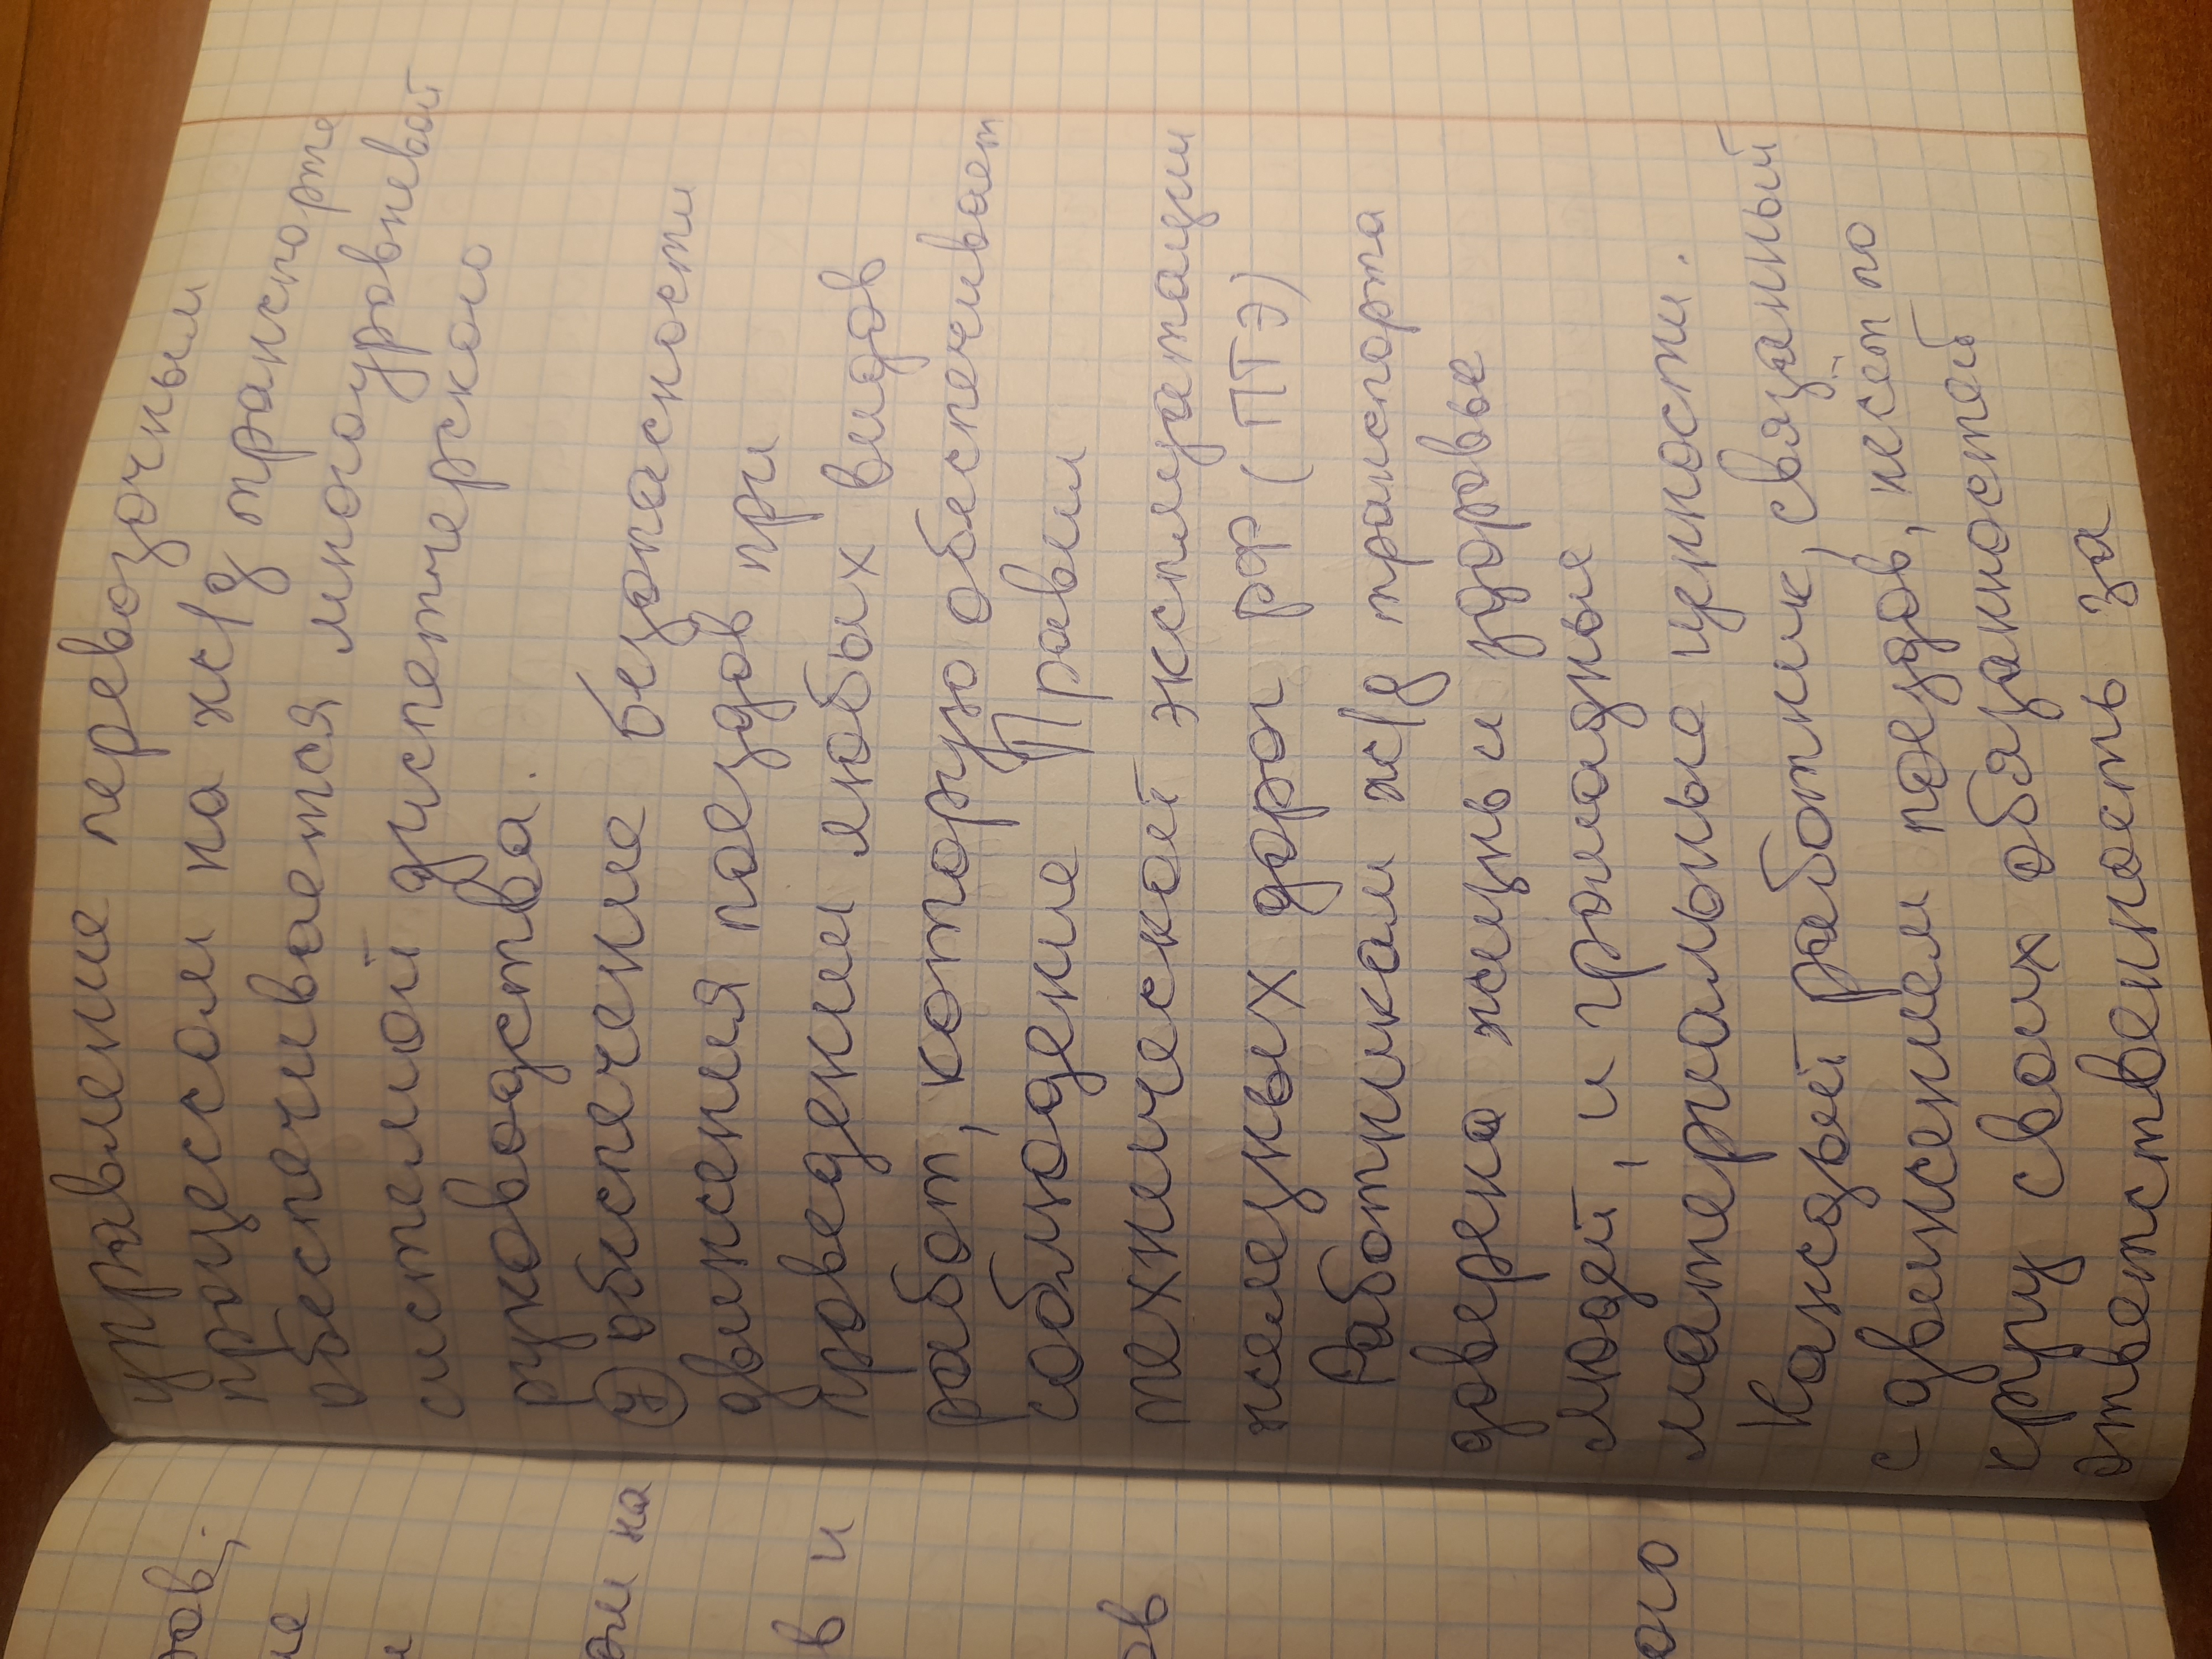 управление перевозочным
процессом на ж/д транспорте
обеспечивается многоуровневой
системой диспетчерского
руководства.
④ обеспечение безопасности
движения поездов при
проведении любых видов
работ, которую обеспечивает
соблюдение Правил
технической эксплуатации
железных дорог РФ (ПТЭ)
Работникам ж/д транспорта
доверена жизнь и здоровье
людей, и громадные
материальные ценности.
Каждый работник, связанный
с движением поездов, несёт по
кругу своих обязаностей
ответственность за
ов;
ие
и
ом на
в и
ов
ого